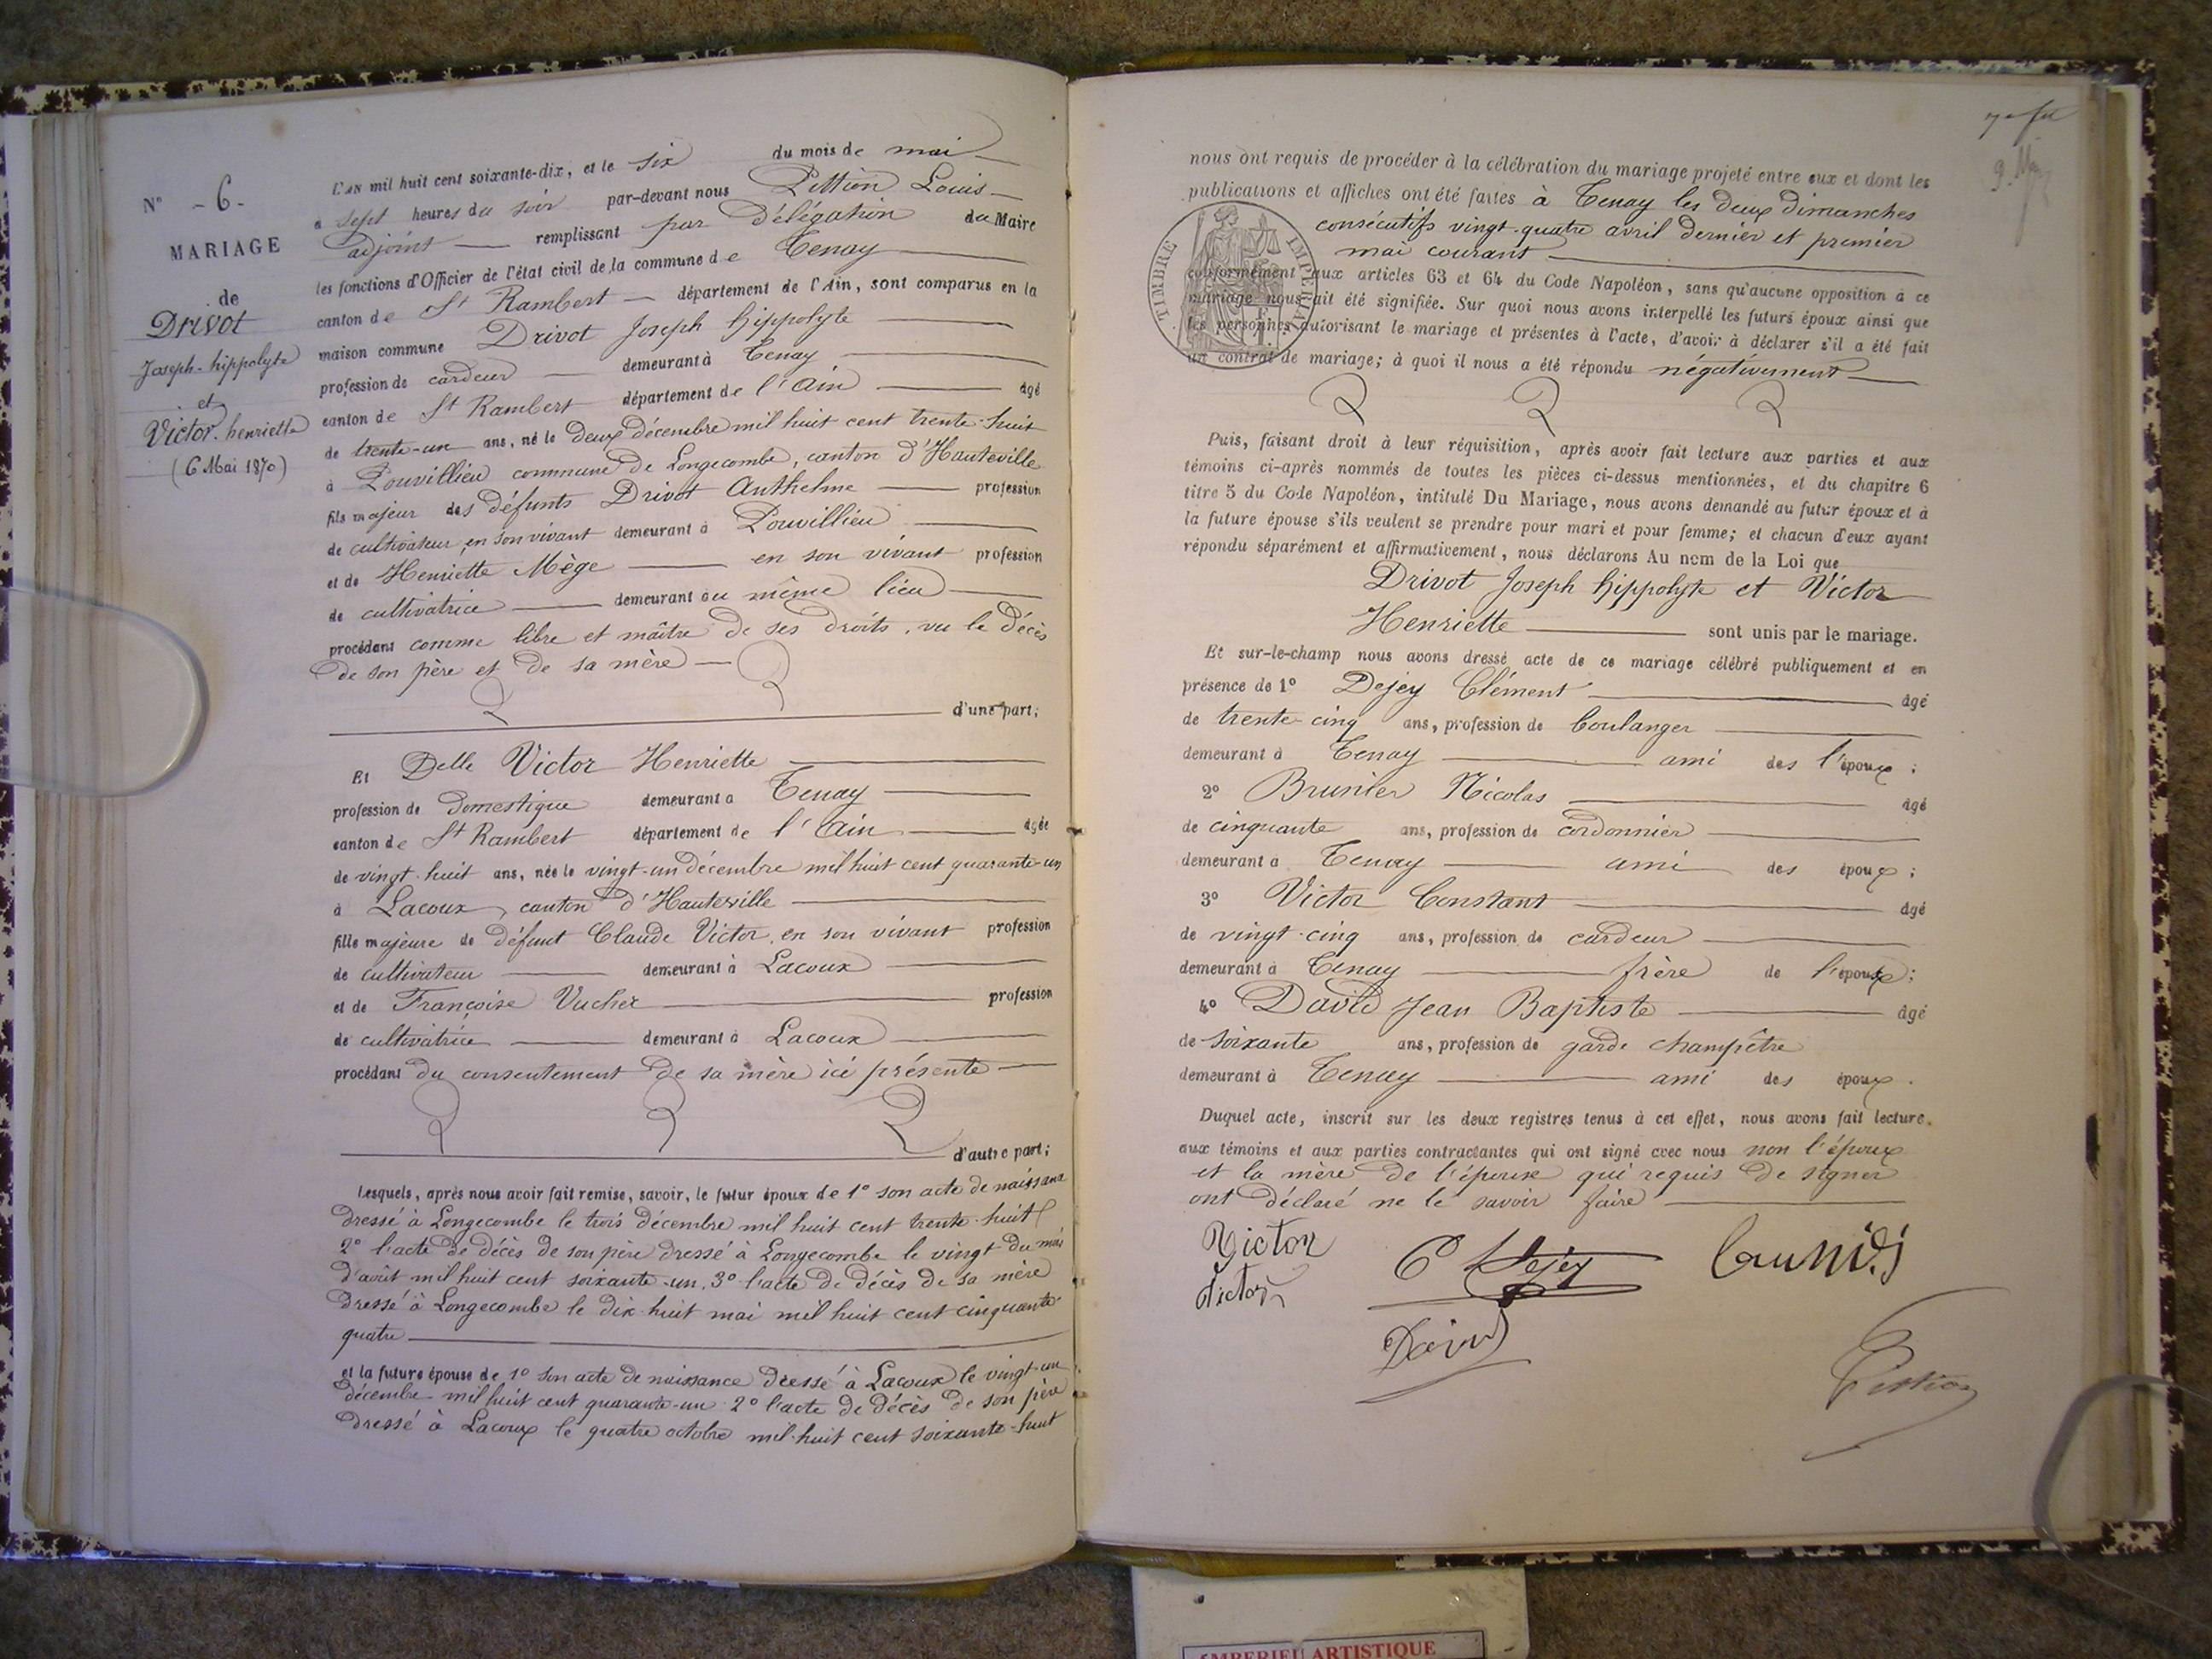 N° - 6 -
MARIAGE
de
Drivot
Joseph-hippolyte
et
Victor henriette
(6 Mai 1870)
L'AN mil huit cent soixante-dix, et le six du mois de mai
a sept heures du soir par-devant nous Pittion Louis
adjoint remplissant par délégation du Maire
les fonctions d'Officier de l'état civil de la commune de Tenay
canton de St Rambert département de l'Ain, sont comparus en la
maison commune Drivot Joseph hippolyte
profession de cardeur demeurant à Tenay
canton de St Rambert département de l'Ain âgé
de trente-un ans, né le deux décembre mil huit cent trente-huit
à Pouvillieu commune de Longecombe, canton d'Hauteville
fils majeur des défunts Drivot Anthelme profession
de cultivateur en son vivant demeurant à Pouvillieu
et de Henriette Mège en son vivant profession
de cultivatrice demeurant au même lieu
procédant comme libre et maître de ses droits, vu le décès
de son père et de sa mère
d'une part;
Et Delle Victor Henriette
profession de domestique demeurant à Tenay
canton de St Rambert département de l'Ain âgée
de vingt-huit ans, née le vingt-un décembre mil huit cent quarante-un
à Lacoux, canton d'Hauteville
fille majeure de défunt Claude Victor, en son vivant profession
de cultivateur demeurant à Lacoux
et de Françoise Vucher profession
de cultivatrice demeurant à Lacoux
procédant du consentement de sa mère ici présente
d'autre part;
Lesquels, après nous avoir fait remise, savoir, le futur époux de 1° son acte de naissance
dressé à Longecombe le trois décembre mil huit cent trente-huit
2° l'acte de décès de son père dressé à Longecombe le vingt du mois
d'août mil huit cent soixante-un, 3° l'acte de décès de sa mère
dressé à Longecombe le dix-huit mai mil huit cent cinquante-
quatre
et la future épouse de 1° son acte de naissance dressé à Lacoux le vingt-un
décembre mil huit cent quarante-un 2° l'acte de décès de son père
dressé à Lacoux le quatre octobre mil-huit cent soixante-huit
nous ont requis de procéder à la célébration du mariage projeté entre eux et dont les
publications et affiches ont été faites à Tenay les deux dimanches
consécutifs vingt-quatre avril dernier et premier
mai courant
TIMBRE IMPERIAL
conformément aux articles 63 et 64 du Code Napoléon, sans qu'aucune opposition à ce
mariage nous ait été signifiée. Sur quoi nous avons interpellé les futurs époux ainsi que
les personnes autorisant le mariage et présentes à l'acte, d'avoir à déclarer s'il a été fait
un contrat de mariage; à quoi il nous a été répondu négativement
Puis, faisant droit à leur réquisition, après avoir fait lecture aux parties et aux
témoins ci-après nommés de toutes les pièces ci-dessus mentionnées, et du chapitre 6
titre 5 du Code Napoléon, intitulé Du Mariage, nous avons demandé au futur époux et à
la future épouse s'ils veulent se prendre pour mari et pour femme; et chacun d'eux ayant
répondu séparément et affirmativement, nous déclarons Au nom de la Loi que
Drivot Joseph hippolyte et Victor
Henriette sont unis par le mariage.
Et sur-le-champ nous avons dressé acte de ce mariage célébré publiquement et en
présence de 1° Dejey Clément âgé
de trente-cinq ans, profession de boulanger
demeurant à Tenay ami des l'époux;
2° Brunier Nicolas âgé
de cinquante ans, profession de cordonnier
demeurant à Tenay ami des époux;
3° Victor Constant âgé
de vingt-cinq ans, profession de cardeur
demeurant à Tenay frère de l'épouse;
4° David Jean Baptiste âgé
de soixante ans, profession de garde champêtre
demeurant à Tenay ami des époux.
Duquel acte, inscrit sur les deux registres tenus à cet effet, nous avons fait lecture,
aux témoins et aux parties contractantes qui ont signé avec nous non l'époux
et la mère de l'épouse qui requis de signer
ont déclaré ne le savoir faire
Victor
C Dejey
Victor
David
Pittion
AMBERIEU ARTISTIQUE